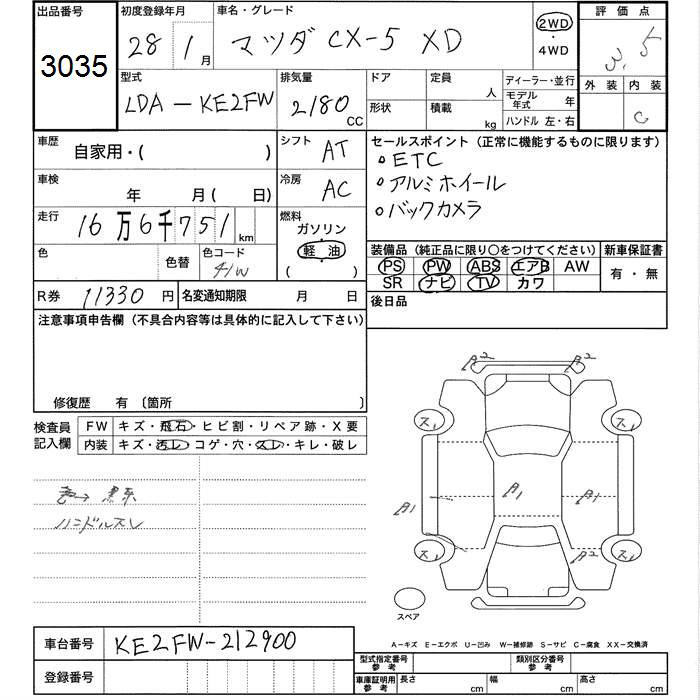 出品番号 初度登録年月 車名・グレード 評価点
3035 28 1月 マツダ CX-5 XD 2WD ・ 4WD 3.5
型式 排気量 ドア 定員 人 ディーラー・並行 外装 内装
LDA-KE2FW 2180 CC 形状 積載 kg モデル年式 年 C
ハンドル 左・右
車歴 自家用・( ) シフト AT セールスポイント (正常に機能するものに限ります)
。ETC
車検 年 月( 日) 冷房 AC 。アルミホイール
走行 16万6千751km 燃料 ガソリン 。バックカメラ
軽油
( )
色 色替 色コード 41W 装備品 (純正品に限り〇をつけてください) 新車保証書
PS PW ABS エアB AW 有・無
SR ナビ TV カワ
R券 11330円 名変通知期限 月 日 後日品
注意事項申告欄 (不具合内容等は具体的に記入して下さい)
修復歴 有 〔箇所 〕
検査員記入欄 FW キズ・飛石・ヒビ割・リペア跡・X要
内装 キズ・汚レ・コゲ・穴・スレ・キレ・破レ
色→黒系
ハンドルスレ
A2 A2
ス1 ス1
A1 A1 A1
ス1 ス1
スペア
車台番号 KE2FW-212900
A-キズ E-エクボ U-凹み W-補修跡 S-サビ C-腐食 XX-交換済
登録番号 型式指定番号 参考 類別区分番号 参考
車庫証明用 参考 長さ cm 幅 cm 高さ cm